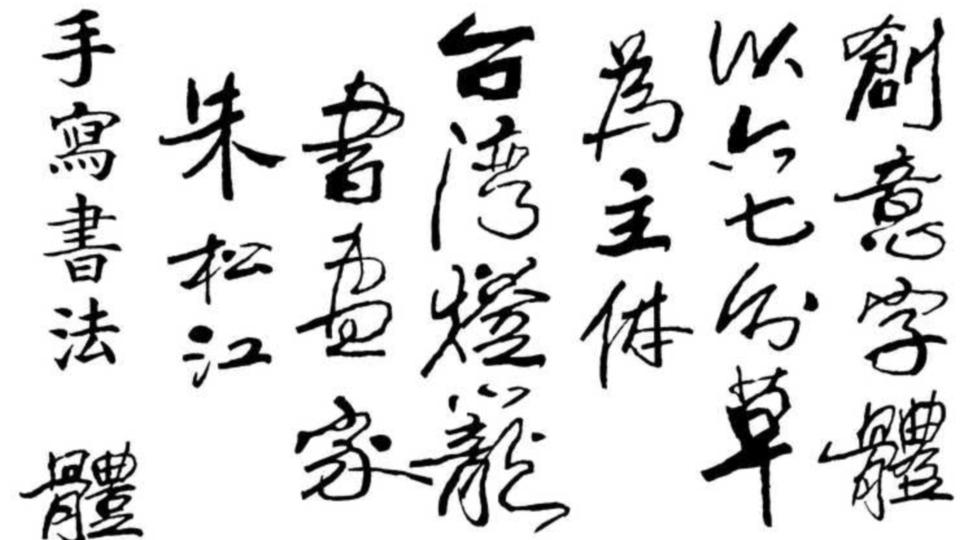 創意字體
以六七分草
為主体
台湾燈籠
書畫家
朱松江
手寫書法
體